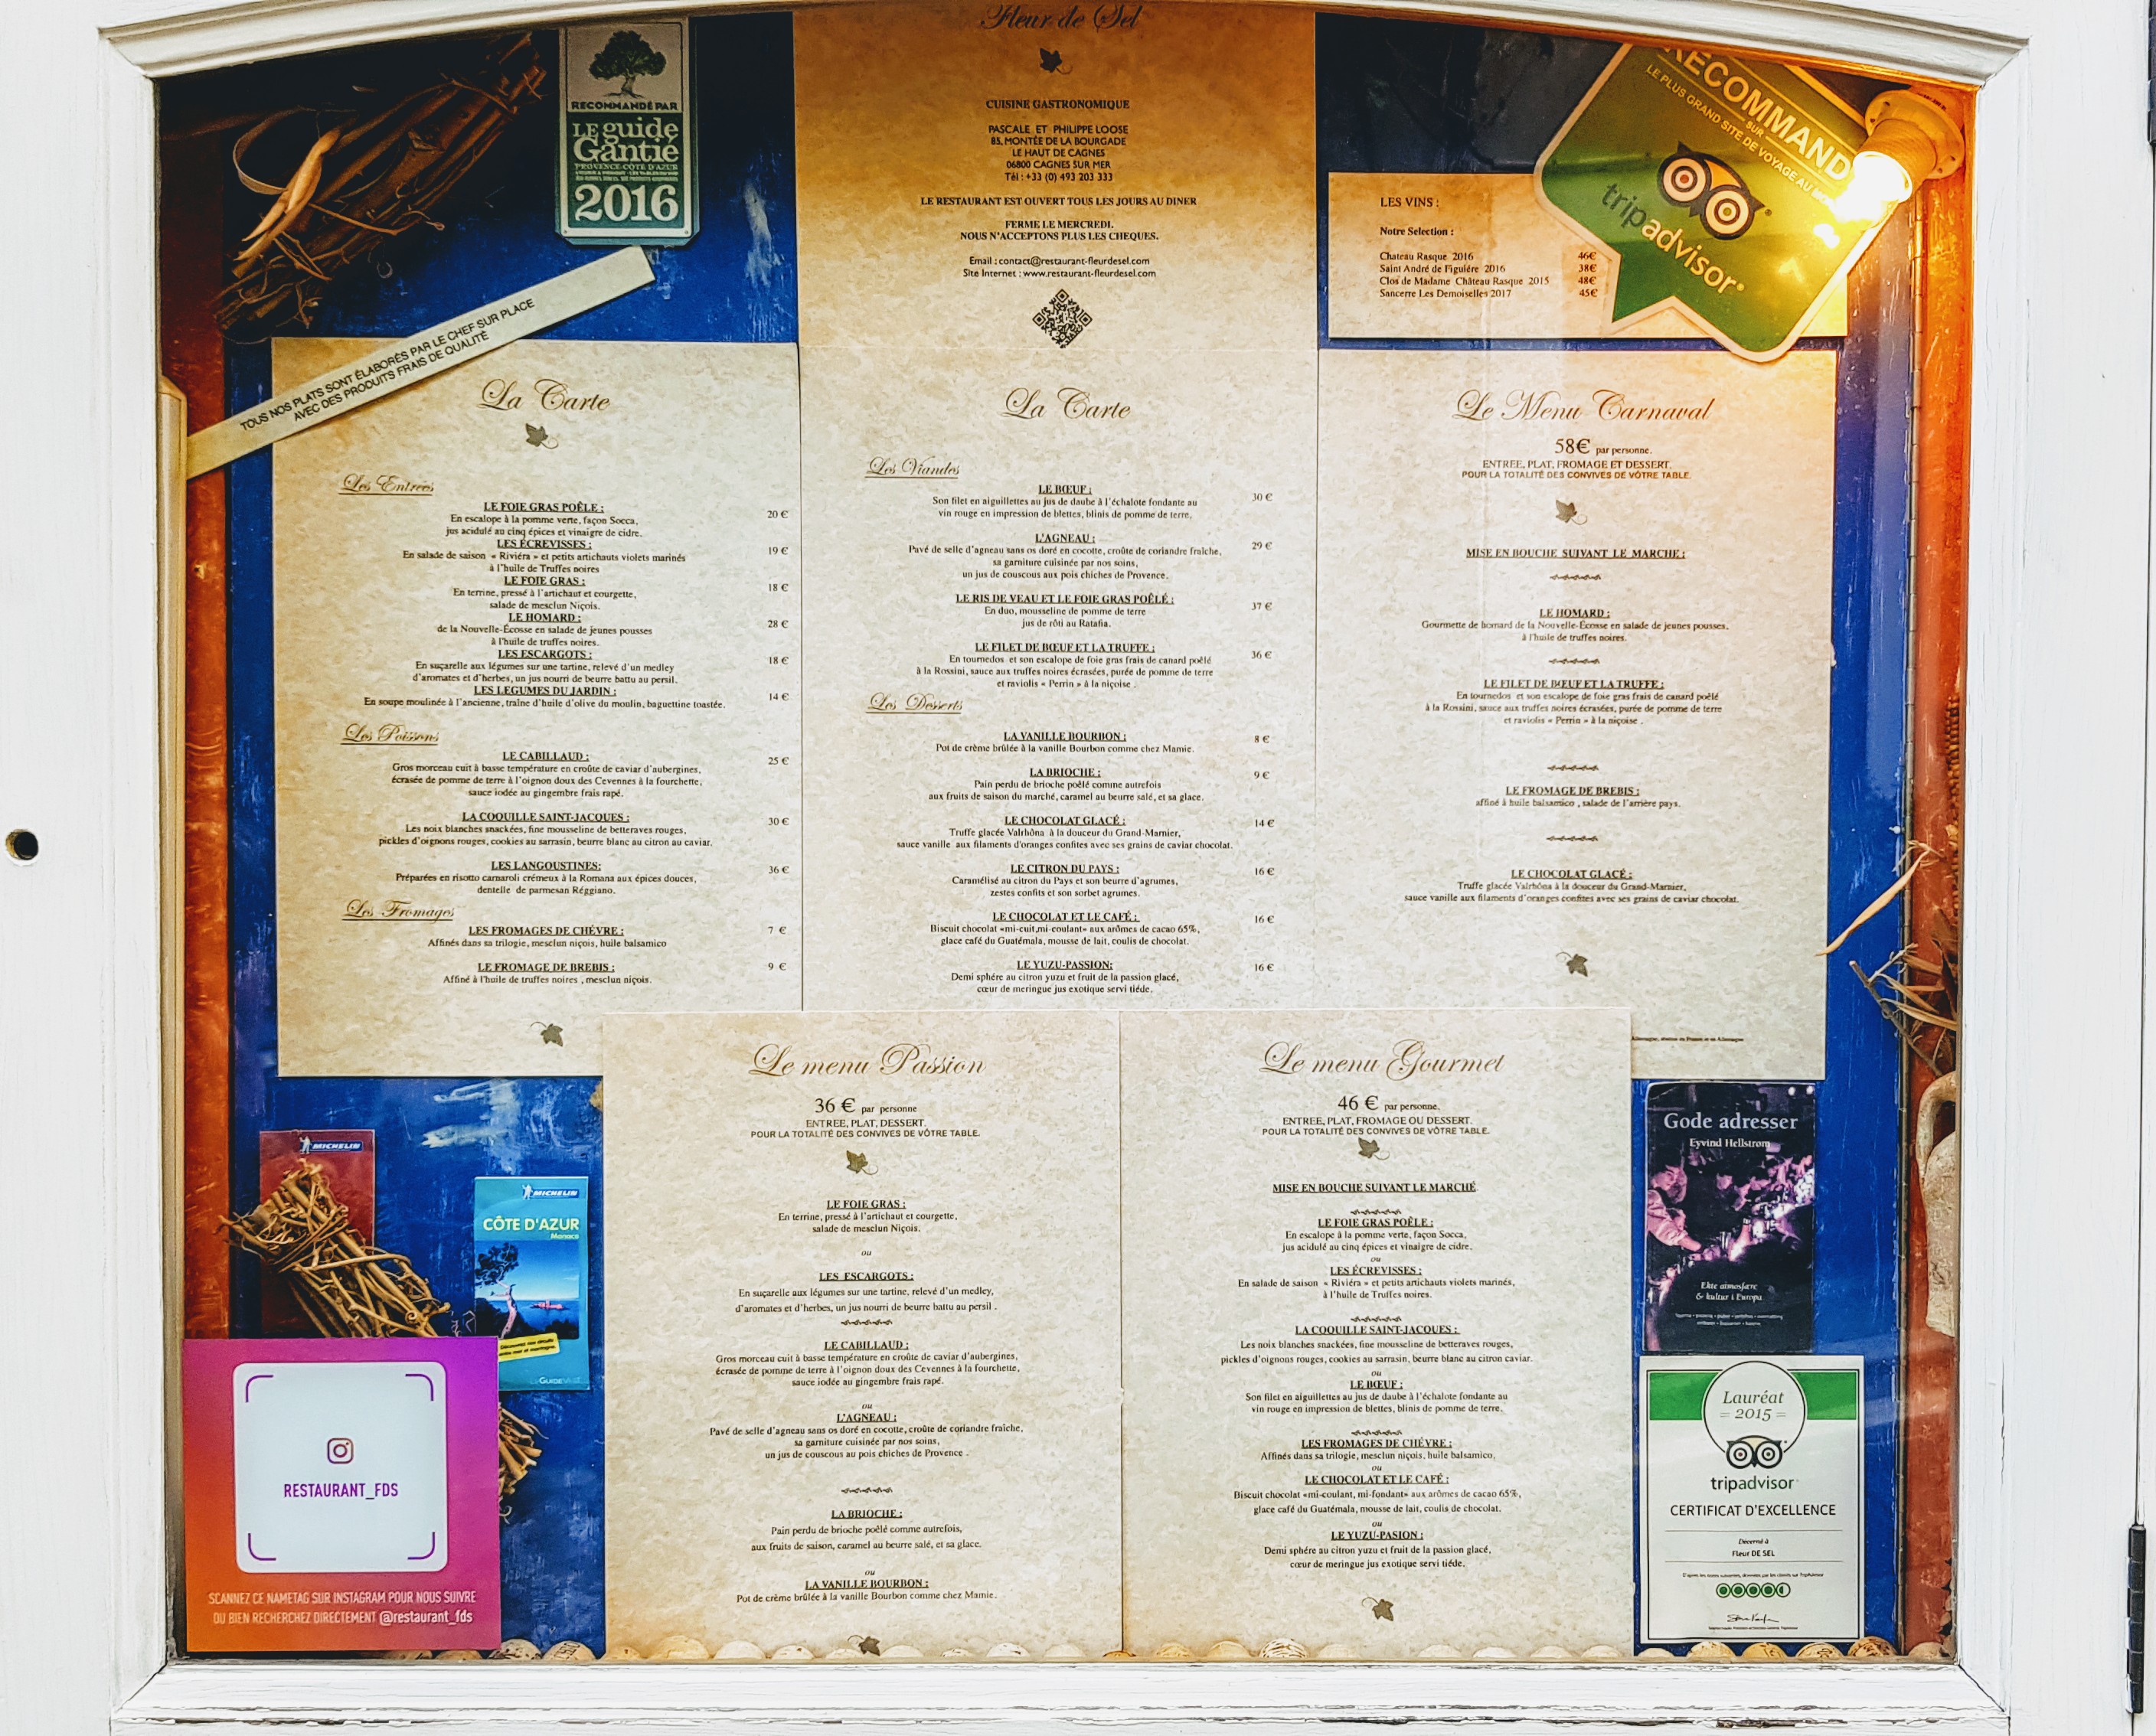 RECOMMANDÉ PAR
LE guide
Gantié
PROVENCE-COTE D'AZUR
2016
TOUS NOS PLATS SONT ÉLABORÉS PAR LE CHEF SUR PLACE
AVEC DES PRODUITS FRAIS DE QUALITÉ
Fleur de Sel
CUISINE GASTRONOMIQUE
PASCALE ET PHILIPPE LOOSE
85, MONTÉE DE LA BOURGADE
LE HAUT DE CAGNES
06800 CAGNES SUR MER
Tél : +33 (0) 493 203 333
LE RESTAURANT EST OUVERT TOUS LES JOURS AU DINER
FERME LE MERCREDI.
NOUS N'ACCEPTONS PLUS LES CHEQUES.
Email : contact@restaurant-fleurdesel.com
Site Internet : www.restaurant-fleurdesel.com
LES VINS :
Notre Selection :
Chateau Rasque 2016 46€
Saint André de Figuière 2016 38€
Clos de Madame Château Rasque 2015 48€
Sancerre Les Demoiselles 2017 45€
RECOMMAND
SUR
LE PLUS GRAND SITE DE VOYAGE AU
tripadvisor
La Carte
Les Entrees
LE FOIE GRAS POÊLE :
En escalope à la pomme verte, façon Socca, 20 €
jus acidulé au cinq épices et vinaigre de cidre.
LES ÉCREVISSES :
En salade de saison « Riviéra » et petits artichauts violets marinés 19 €
à l'huile de Truffes noires
LE FOIE GRAS :
En terrine, pressé à l'artichaut et courgette, 18 €
salade de mesclun Niçois.
LE HOMARD :
de la Nouvelle-Écosse en salade de jeunes pousses 28 €
à l'huile de truffes noires.
LES ESCARGOTS :
En suçarelle aux légumes sur une tartine, relevé d'un medley 18 €
d'aromates et d'herbes, un jus nourri de beurre battu au persil.
LES LEGUMES DU JARDIN :
En soupe moulinée à l'ancienne, traîne d'huile d'olive du moulin, baguettine toastée. 14 €
Les Poissons
LE CABILLAUD :
Gros morceau cuit à basse température en croûte de caviar d'aubergines, 25 €
écrasée de pomme de terre à l'oignon doux des Cevennes à la fourchette,
sauce iodée au gingembre frais rapé.
LA COQUILLE SAINT-JACQUES : 30 €
Les noix blanches snackées, fine mousseline de betteraves rouges,
pickles d'oignons rouges, cookies au sarrasin, beurre blanc au citron au caviar.
LES LANGOUSTINES: 36 €
Préparées en risotto carnaroli crémeux à la Romana aux épices douces,
dentelle de parmesan Réggiano.
Les Fromages
LES FROMAGES DE CHÉVRE : 7 €
Affinés dans sa trilogie, mesclun niçois, huile balsamico
LE FROMAGE DE BREBIS : 9 €
Affiné à l'huile de truffes noires , mesclun niçois.
La Carte
Les Viandes
LE BŒUF : 30 €
Son filet en aiguillettes au jus de daube à l'échalote fondante au
vin rouge en impression de blettes, blinis de pomme de terre.
L'AGNEAU : 29 €
Pavé de selle d'agneau sans os doré en cocotte, croûte de coriandre fraîche,
sa garniture cuisinée par nos soins,
un jus de couscous aux pois chiches de Provence.
LE RIS DE VEAU ET LE FOIE GRAS POÊLÉ : 37 €
En duo, mousseline de pomme de terre
jus de rôti au Ratafia.
LE FILET DE BŒUF ET LA TRUFFE : 36 €
En tournedos et son escalope de foie gras frais de canard poêlé
à la Rossini, sauce aux truffes noires écrasées, purée de pomme de terre
et raviolis « Perrin » à la niçoise .
Les Desserts
LA VANILLE BOURBON : 8 €
Pot de crème brûlée à la vanille Bourbon comme chez Mamie.
LA BRIOCHE : 9 €
Pain perdu de brioche poêlé comme autrefois
aux fruits de saison du marché, caramel au beurre salé, et sa glace.
LE CHOCOLAT GLACÉ : 14 €
Truffe glacée Valrhôna à la douceur du Grand-Marnier,
sauce vanille aux filaments d'oranges confites avec ses grains de caviar chocolat.
LE CITRON DU PAYS : 16 €
Caramélisé au citron du Pays et son beurre d'agrumes,
zestes confits et son sorbet agrumes.
LE CHOCOLAT ET LE CAFÉ : 16 €
Biscuit chocolat «mi-cuit,mi-coulant» aux arômes de cacao 65%,
glace café du Guatémala, mousse de lait, coulis de chocolat.
LE YUZU-PASSION: 16 €
Demi sphére au citron yuzu et fruit de la passion glacé,
cœur de meringue jus exotique servi tiéde.
Le Menu Carnaval
58€ par personne.
ENTREE, PLAT, FROMAGE ET DESSERT.
POUR LA TOTALITÉ DES CONVIVES DE VÔTRE TABLE.
MISE EN BOUCHE SUIVANT LE MARCHE :
LE HOMARD :
Gourmette de homard de la Nouvelle-Écosse en salade de jeunes pousses,
à l'huile de truffes noires.
LE FILET DE BŒUF ET LA TRUFFE :
En tournedos et son escalope de foie gras frais de canard poêlé
à la Rossini, sauce aux truffes noires écrasées, purée de pomme de terre
et raviolis « Perrin » à la niçoise .
LE FROMAGE DE BREBIS :
affiné à huile balsamico , salade de l'arrière pays.
LE CHOCOLAT GLACÉ :
Truffe glacée Valrhôna à la douceur du Grand-Marnier,
sauce vanille aux filaments d'oranges confites avec ses grains de caviar chocolat.
Le menu Passion
36 € par personne
ENTREE, PLAT, DESSERT.
POUR LA TOTALITÉ DES CONVIVES DE VÔTRE TABLE.
LE FOIE GRAS :
En terrine, pressé à l'artichaut et courgette,
salade de mesclun Niçois.
ou
LES ESCARGOTS :
En suçarelle aux légumes sur une tartine, relevé d'un medley,
d'aromates et d'herbes, un jus nourri de beurre battu au persil .
LE CABILLAUD :
Gros morceau cuit à basse température en croûte de caviar d'aubergines,
écrasée de pomme de terre à l'oignon doux des Cevennes à la fourchette,
sauce iodée au gingembre frais rapé.
ou
L'AGNEAU :
Pavé de selle d'agneau sans os doré en cocotte, croûte de coriandre fraîche,
sa garniture cuisinée par nos soins,
un jus de couscous au pois chiches de Provence .
LA BRIOCHE :
Pain perdu de brioche poêlé comme autrefois,
aux fruits de saison, caramel au beurre salé, et sa glace.
ou
LA VANILLE BOURBON :
Pot de crème brûlée à la vanille Bourbon comme chez Mamie.
Le menu Gourmet
46 € par personne.
ENTREE, PLAT, FROMAGE OU DESSERT.
POUR LA TOTALITÉ DES CONVIVES DE VÔTRE TABLE.
MISE EN BOUCHE SUIVANT LE MARCHÉ
LE FOIE GRAS POÊLE :
En escalope à la pomme verte, façon Socca,
jus acidulé au cinq épices et vinaigre de cidre.
ou
LES ÉCREVISSES :
En salade de saison « Riviéra » et petits artichauts violets marinés,
à l'huile de Truffes noires.
LA COQUILLE SAINT-JACQUES :
Les noix blanches snackées, fine mousseline de betteraves rouges,
pickles d'oignons rouges, cookies au sarrasin, beurre blanc au citron caviar.
ou
LE BŒUF :
Son filet en aiguillettes au jus de daube à l'échalote fondante au
vin rouge en impression de blettes, blinis de pomme de terre.
LES FROMAGES DE CHÉVRE :
Affinés dans sa trilogie, mesclun niçois, huile balsamico,
ou
LE CHOCOLAT ET LE CAFÉ :
Biscuit chocolat «mi-coulant, mi-fondant» aux arômes de cacao 65%,
glace café du Guatémala, mousse de lait, coulis de chocolat.
ou
LE YUZU-PASION :
Demi sphére au citron yuzu et fruit de la passion glacé,
cœur de meringue jus exotique servi tiéde.
MICHELIN
MICHELIN
CÔTE D'AZUR
Monaco
RESTAURANT_FDS
SCANNEZ CE NAMETAG SUR INSTAGRAM POUR NOUS SUIVRE
OU BIEN RECHERCHEZ DIRECTEMENT @restaurant_fds
Gode adresser
Eyvind Hellstrøm
Ekte atmosfære
& kultur i Europa
Lauréat
2015
tripadvisor
CERTIFICAT D'EXCELLENCE
Décerné à
Fleur DE SEL